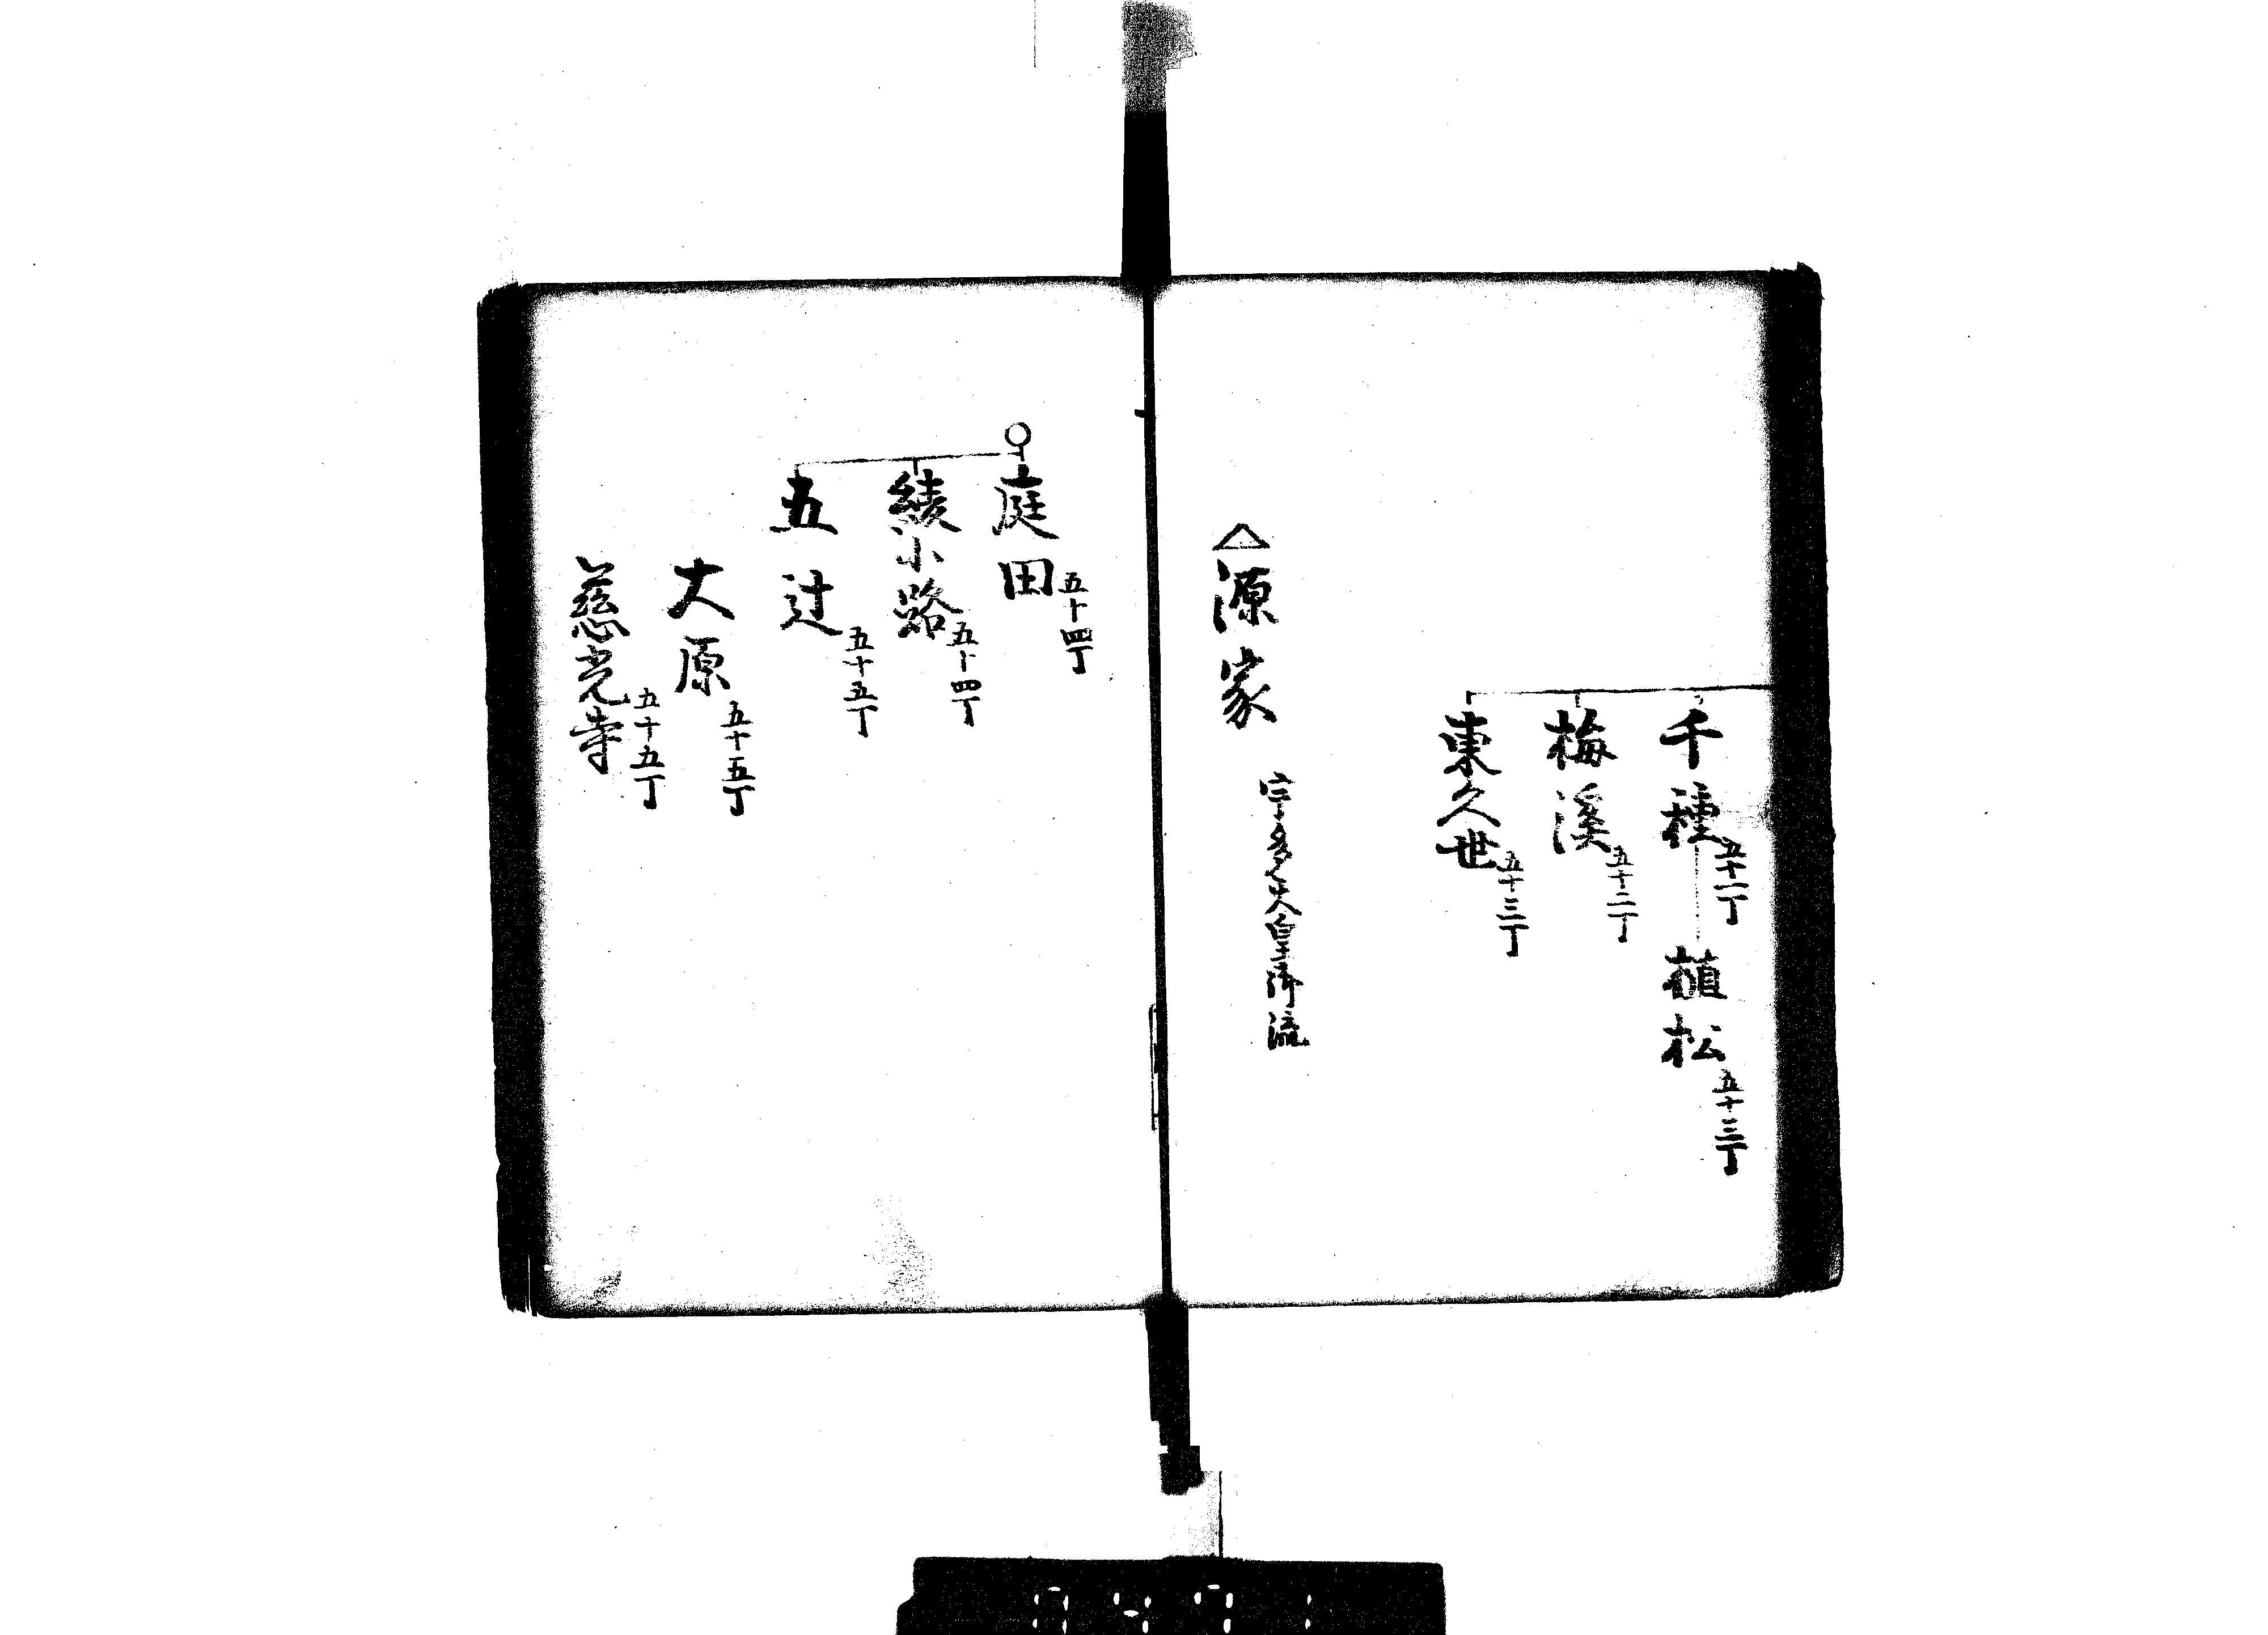 千種 五十二丁
植松 五十三丁
梅溪 五十二丁
東久世 五十三丁
△源家 宇多天皇御流
庭田 五十四丁
綾小路 五十四丁
五辻 五十五丁
大原 五十五丁
慈光寺 五十五丁